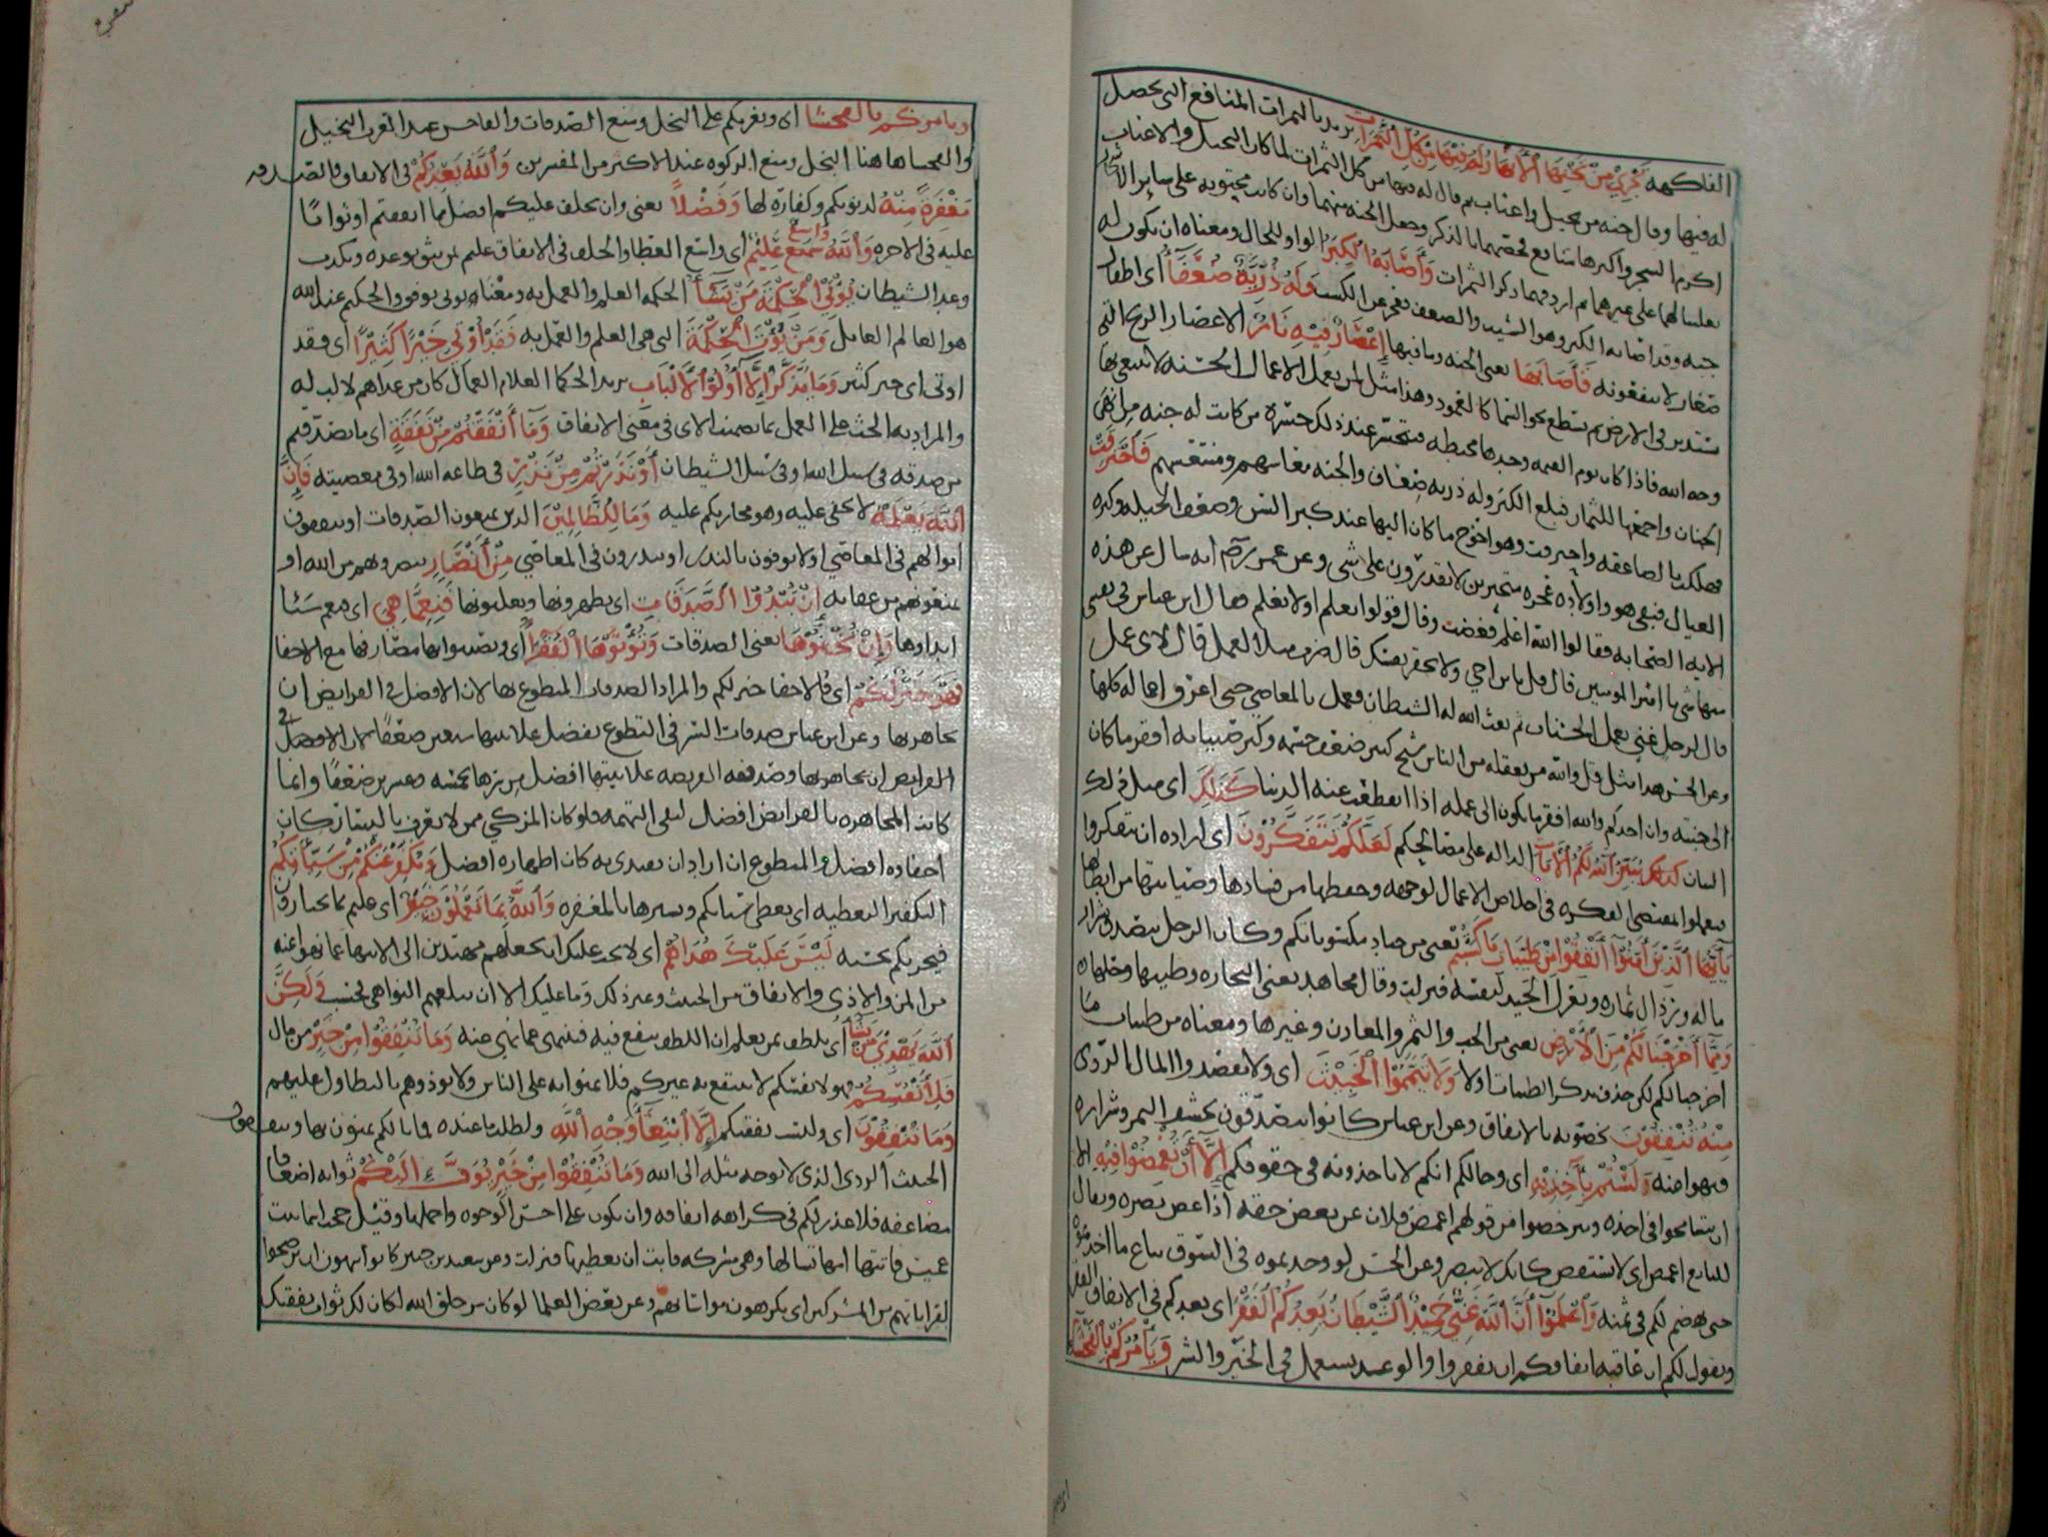 الفاكهة تَجْرِي مِنْ تَحْتِهَا الْأَنْهَارُ لَهُ فِيهَا مِنْ كُلِّ الثَّمَرَاتِ يريد بالثمرات المنافع التي تحصل
له فيها وقال جنه من نخيل واعناب ثم قال له فيها من كل الثمرات لما كان النخيل والاعناب
اكرم الشجر واكثرها منافع خصهما بالذكر وجعل الجنه منهما وان كانت محتويه على ساير الاشجار
تغليبا لهما على غيرهما ثم اردفهما ذكر الثمرات وَأَصَابَهُ الْكِبَرُ الواو للحال ومعناه ان تكون له
جنه وقد اصابه الكبر وهو الشيب والضعف فعجز عن الكسب وَلَهُ ذُرِّيَّةٌ ضُعَفَاءُ اي اطفال
صغار لا ينفعونه فَأَصَابَهَا يعنى الجنه وما فيها إِعْصَارٌ فِيهِ نَارٌ الاعصار الريح التي
تستدير في الارض ثم تسطع نحو السما كالعمود وهذا مثل لمن يعمل الاعمال الحسنه لا يبتغي بها
وجه الله فاذا كان يوم القيمه وجدها محبطه فيتحسر عند ذلك حسره من كانت له جنه من ابهى
الجنان واجمعها للثمار فبلغ الكبر وله ذريه ضعاف والجنه معاشهم ومنتعشهم فَاحْتَرَقَتْ
فهلكت بالصاعقه واحترقت وهو احوج ما كان اليها عند كبر السن وضعف الحيله وكثره
العيال فبقي هو واولاده عجزه متحيرين لا يقدرون على شي وعن عمر رضم انه سال عن هذه
الايه الصحابه فقالوا الله اعلم فغضب وقال قولوا نعلم او لا نعلم فقال ابن عباس في نفسي
منها شي يا امير المومنين قال قل يا بن اخي ولا تحقر نفسك قال ضرب مثلا لعمل قال لاى عمل
قال لرجل غني يعمل الحسنات ثم بعث الله له الشيطان فعمل بالمعاصي حتى اغرق اعماله كلها
وعن الحسن هذا مثل قل والله من يعقله من الناس شيخ كبير ضعف جسمه وكثر صبيانه افقر ما كان
الى جنته وان احدكم والله افقر ما يكون الى عمله اذا انقطعت عنه الدنيا كَذَلِكَ اي مثل ذلك
البيان كَذَلِكَ يُبَيِّنُ اللَّهُ لَكُمُ الْآيَاتِ الداله على مصالحكم لَعَلَّكُمْ تَتَفَكَّرُونَ اي اراده ان تتفكروا
فتعملوا بمقتضى الفكره في اخلاص الاعمال لوجهه وحفظها من فسادها وصيانتها من ابطالها
يَاأَيُّهَا الَّذِينَ آمَنُوا أَنْفِقُوا مِنْ طَيِّبَاتِ مَا كَسَبْتُمْ يعنى من جياد مكسوباتكم وكان الرجل يتصدق بشرار
ماله ورذال ثماره ويعزل الجيد لنفسه فنزلت وقال مجاهد يعنى التجاره وطيبها وحلها
وَمِمَّا أَخْرَجْنَا لَكُمْ مِنَ الْأَرْضِ يعنى من الحب والثمر والمعادن وغيرها ومعناه من طيبات ما
اخرجنا لكم لكن حذف بذكر الطيبات اولا وَلَا تَيَمَّمُوا الْخَبِيثَ اي ولا تقصدوا المال الردي
مِنْهُ تُنْفِقُونَ تخصونه بالانفاق وعن ابن عباس كانوا يتصدقون بحشف التمر وشراره
فنهوا عنه وَلَسْتُمْ بِآخِذِيهِ اي وحالكم انكم لا تاخذونه في حقوقكم إِلَّا أَنْ تُغْمِضُوا فِيهِ الا
ان تتسامحوا في اخذه وترخصوا من قولهم اغمض فلان عن بعض حقه اذا غض بصره ويقال
للبايع اغمض اي لا تستقص كانك لا تبصر وعن الحسن لو وجدتموه في السوق يباع ما اخذتموه
حتى يهضم لكم في ثمنه وَاعْلَمُوا أَنَّ اللَّهَ غَنِيٌّ حَمِيدٌ الشَّيْطَانُ يَعِدُكُمُ الْفَقْرَ اي يعدكم في الانفاق الفقر
ويقول لكم ان عاقبه انفاقكم ان تفتقروا والوعد يستعمل في الخير والشر وَيَأْمُرُكُمْ بِالْفَحْشَاءِ
ويامركم بالفحشا اي ويغريكم على البخل ومنع الصدقات والفاحش عند العرب البخيل
والفحشا هاهنا البخل ومنع الزكوه عند الاكثر من المفسرين وَاللَّهُ يَعِدُكُمْ في الانفاق والصدقه
مَغْفِرَةً مِنْهُ لذنوبكم وكفاره لها وَفَضْلًا يعنى وان يخلف عليكم افضل مما انفقتم او ثوابا
عليه في الاخره وَاللَّهُ وَاسِعٌ عَلِيمٌ اي واسع العطا والخلف في الانفاق عليم بمن يثق بوعده ويكذب
وعد الشيطان يُؤْتِي الْحِكْمَةَ مَنْ يَشَاءُ الحكمه العلم والعمل به ومعناه يوتى يوفق والحكيم عند الله
هو العالم العامل وَمَنْ يُؤْتَ الْحِكْمَةَ التي هي العلم والعمل به فَقَدْ أُوتِيَ خَيْرًا كَثِيرًا اي فقد
اوتى اي خير كثير وَمَا يَذَّكَّرُ إِلَّا أُولُو الْأَلْبَابِ يريد الحكما العلام العمال كان من عداهم لا لب له
والمراد به الحث على العمل بما تضمنت الاى في معنى الانفاق وَمَا أَنْفَقْتُمْ مِنْ نَفَقَةٍ اي ما تصدقتم
من صدقه في سبيل الله او في سبيل الشيطان أَوْ نَذَرْتُمْ مِنْ نَذْرٍ في طاعه الله او في معصيته فَإِنَّ
اللَّهَ يَعْلَمُهُ لا يخفى عليه وهو مجازيكم عليه وَمَا لِلظَّالِمِينَ الذين يمنعون الصدقات او ينفقون
اموالهم في المعاصي او لا يوفون بالنذر او ينذرون في المعاصي مِنْ أَنْصَارٍ ينصروهم من الله او
يمنعونهم من عقابه إِنْ تُبْدُوا الصَّدَقَاتِ اي تظهرونها وتعلنونها فَنِعِمَّا هِيَ اي فنعم شيئا
ابداوها وَإِنْ تُخْفُوهَا يعنى الصدقات وَتُؤْتُوهَا الْفُقَرَاءَ اي وتصيبوا بها مصارفها مع الاخفا
فَهُوَ خَيْرٌ لَكُمْ اي فالاخفا خير لكم والمراد الصدقات المتطوع بها لان الافضل في الفرايض ان
يجاهر بها وعن ابن عباس صدقات السر في التطوع يفضل علانيتها سبعين ضعفا كما الافضل في
الفرايض ان يجاهر بها وصدقه الفريضه علانيتها افضل من سرها بخمسه وعشرين ضعفا وانما
كانت المجاهره بالفرايض افضل لنفي التهمه فلو كان المزكي ممن لا يعرف باليسار كان
اخفاوه افضل والمتطوع ان اراد ان يقتدى به كان اظهاره افضل وَيُكَفِّرُ عَنْكُمْ مِنْ سَيِّئَاتِكُمْ
التكفير التغطيه اي يغطى سياتكم ويسترها بالمغفره وَاللَّهُ بِمَا تَعْمَلُونَ خَبِيرٌ اي عليم بما تختارون
فيجزيكم بحسبه لَيْسَ عَلَيْكَ هُدَاهُمْ اي لا يجب عليك ان تجعلهم مهتدين الى الانتها عما نهوا عنه
من المن والاذى والانفاق من الخبيث وغير ذلك وما عليك الا ان تبلغهم النواهي فحسب وَلَكِنَّ
اللَّهَ يَهْدِي مَنْ يَشَاءُ اي يلطف بمن يعلم ان اللطف ينفع فيه فينتهى عما نهى عنه وَمَا تُنْفِقُوا مِنْ خَيْرٍ من مال
فَلِأَنْفُسِكُمْ فهو لانفسكم لا ينتفع به غيركم فلا تمنوا به على الناس ولا توذوهم بالتطاول عليهم
وَمَا تُنْفِقُونَ اي وليست نفقتكم إِلَّا ابْتِغَاءَ وَجْهِ اللَّهِ ولطلب ما عنده فما بالكم تمنون بها وتنفقون
الخبيث الردي الذي لا يوجه مثله الى الله وَمَا تُنْفِقُوا مِنْ خَيْرٍ يُوَفَّ إِلَيْكُمْ ثوابه اضعافا
مضاعفه فلا عذر لكم في كراهه انفاقه وان يكون على احسن الوجوه واجملها وقيل حجت اسما بنت
عميس فاتتها امها تسالها وهي مشركه فابت ان تعطيها فنزلت وعن سعيد بن جبير كانوا يتقون ان يرضخوا
لقراباتهم من المشركين اي يكرهون مواساتهم وعن بعض العلما لو كان شر خلق الله لكان لك ثواب نفقتك